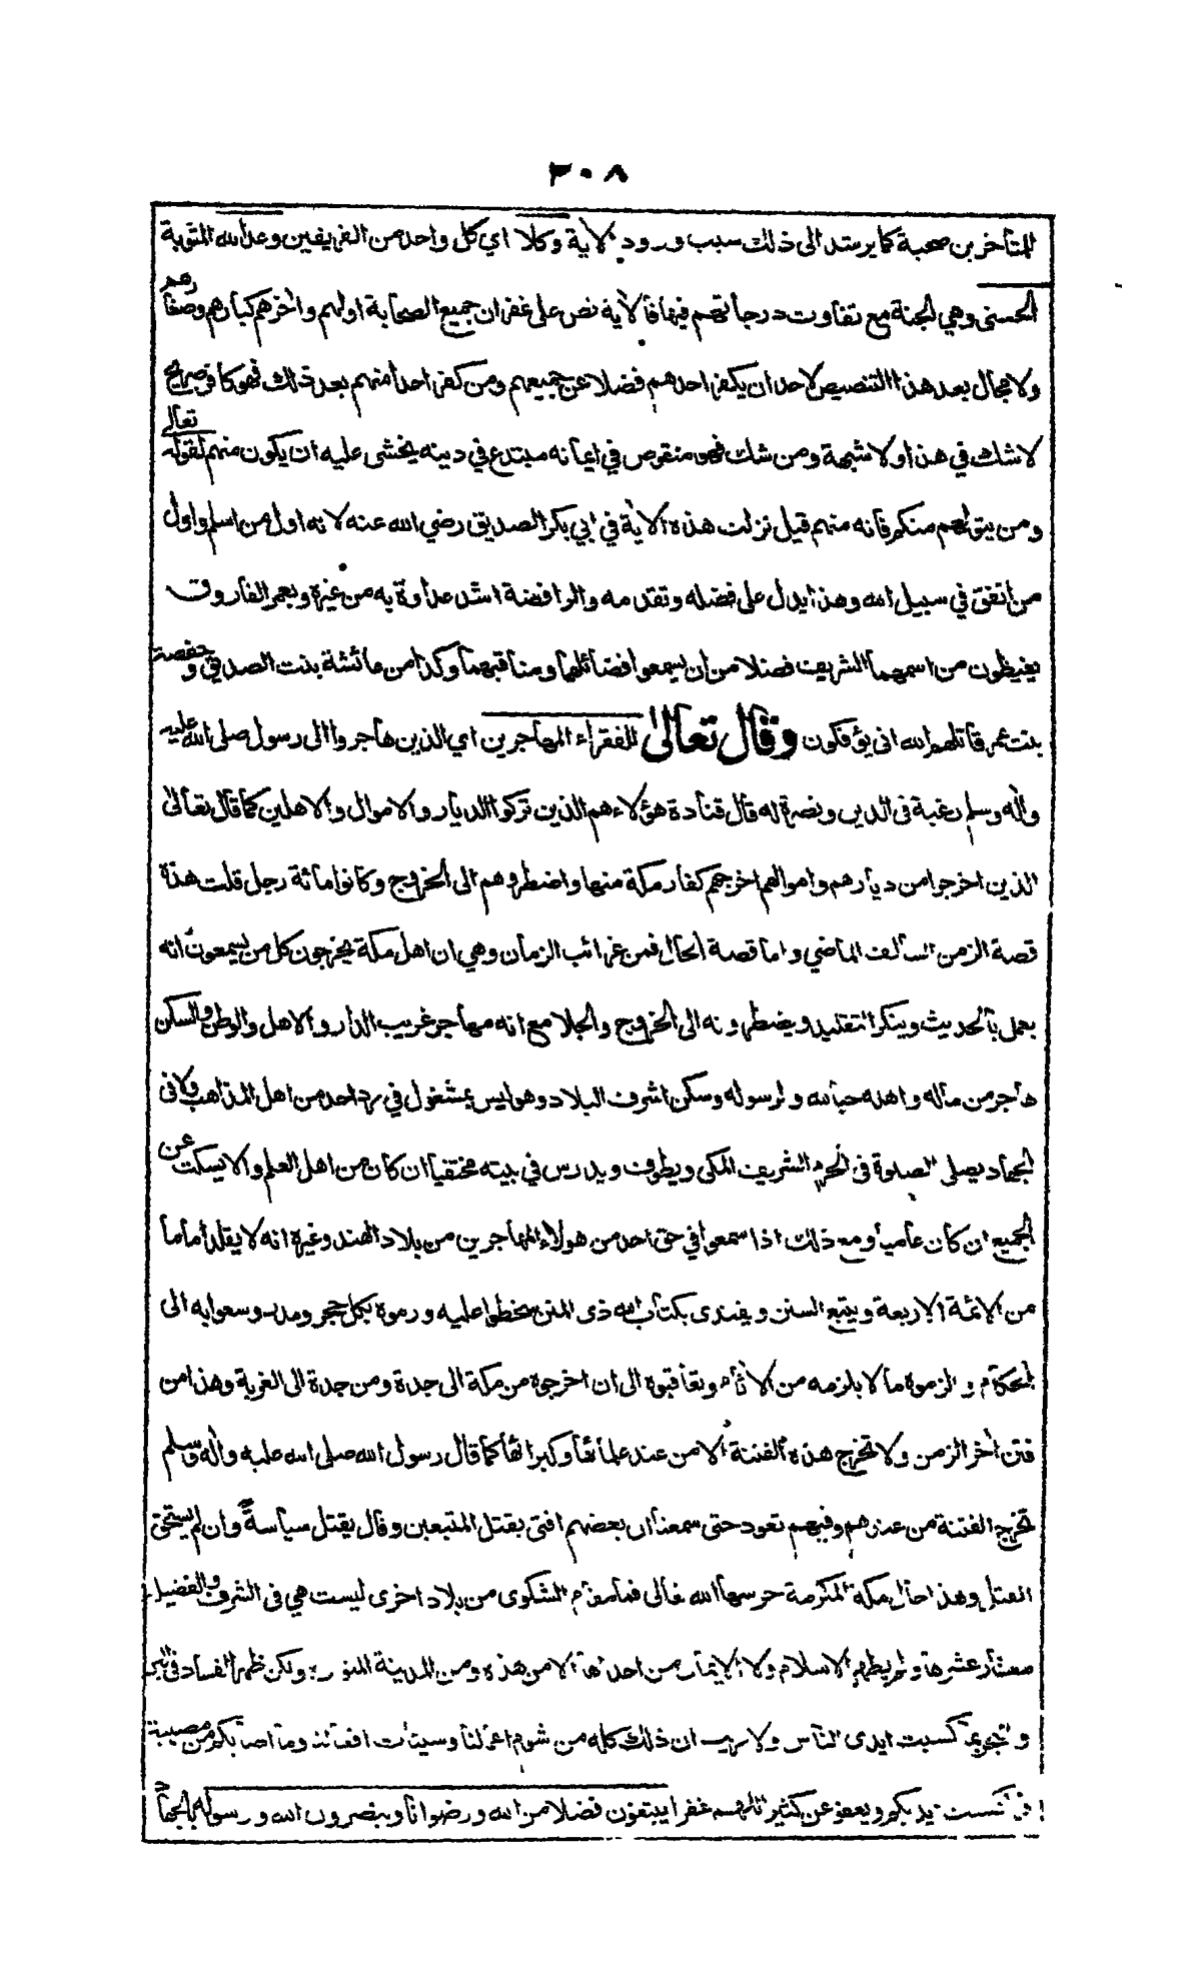 ٣٠٨
للمتأخر بن صحبة كما يرستد الى ذلك سبب ورود الاية وكلا اي كل واحد من الفريقين وعد الله المثوبة
الحسنى وهي الجنة مع تفاوت درجاتهم فيها فالأية نص على غفران جميع الصحابة اولهم وأخرهم كبارهم وصغارهم
ولا مجال بعد هذا التنصيص لاحد ان يكفر احدهم فضلا عن جميعهم ومن كفر احدا منهم بعد ذلك فهو كافر صراح
لا شك في هذا ولا شبهة ومن شك فهو منقوص في ايمانه مبتدع في دينه يخشى عليه ان يكون منهم لقوله تعالى
ومن يتولهم منكم فانه منهم قيل نزلت هذه الاية في ابي بكر الصديق رضي الله عنه لانه اول من اسلم واول
من انفق في سبيل الله وهذا يدل على فضله وتقدمه والرافضة اشد عداوة به من غيره وبعمر الفاروق
يغيظون من اسمهما الشريف فضلا من ان يسمعوا فضائلهما ومناقبهما وكذا من عائشة بنت الصديق وحفصة
بنت عمر قاتلهم الله انى يؤفكون وقال تعالى للفقراء المهاجرين اي الذين هاجروا الى رسول صلى الله عليه
وأله وسلم رغبة في الدين ونصرة له قال قتادة هؤلاء هم الذين تركوا الديار والاموال والاهلين كما قال تعالى
الذين اخرجوا من ديارهم واموالهم اخرجهم كفار مكة منها واضطروهم الى الخروج وكانوا مائة رجل قلت هذه
قصة الزمن السالف الماضي واما قصة الحال فمن غرائب الزمان وهي ان اهل مكة يخرجون كل من يسمعون انه
يعمل بالحديث وينكر التقليد ويضطرونه الى الخروج والجلا مع انه مهاجر غريب الدار والاهل والوطن والسكن
هاجر من ماله واهله حبا لله ولرسوله وسكن اشرف البلاد وهو ليس بمشغول في رد احد من اهل المذاهب ولا في
الجهاد يصلى الصلوة في الحرم الشريف المكى ويطوف ويدرس في بيته مختفيا ان كان من اهل العلم والا يسكت عن
الجميع ان كان عاميا ومع ذلك اذا سمعوا في حق احد من هولاء المهاجرين من بلاد الهند وغيره انه لا يقلد اماما
من الائمة الاربعة ويتبع السنن ويفتدى بكتاب الله ذى المنن سخطوا عليه ورموه بكل حجر ومدر وسعوا به الى
الحكام والزموه ما لا يلزمه من الأثام وتعاقبوه الى ان اخرجوه من مكة الى جدة ومن جدة الى الغربة وهذا من
فتن أخر الزمن ولا تخرج هذه الفتنة الا من عند علمائها وكبرائها كما قال رسول الله صلى الله عليه وأله وسلم
تخرج الفتنة من عندهم وفيهم تعود حتى سمعنا ان بعضهم افتى بقتل المتبعين وقال يقتل سياسةً وان لم يستحق
القتل وهذا حال مكة المكرمة حرسها الله تعالى فما الشكوى من بلاد اخرى ليست هي في الشرف والفضيلة
معشار عشرها ولم يظهر الاسلام ولا الايمان من احداها الا من هذه ومن المدينة المنورة ولكن ظهر الفساد في البر
والبحر بما كسبت ايدى الناس ولا ريب ان ذلك كله من شوم اعمالنا وسيئات افعالنا وما اصابكم من مصيبة
فبما كسبت ايديكم ويعفو عن كثير اللهم غفرا يبتغون فضلا من الله ورضوانا وينصرون الله ورسوله بالجهاد